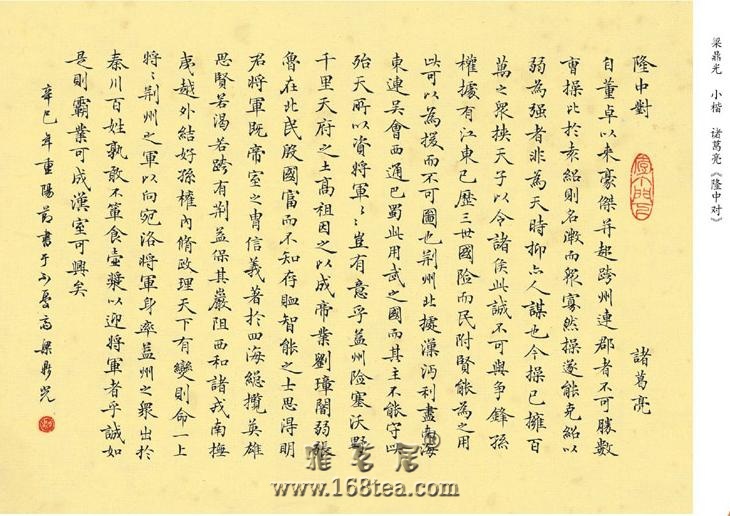 梁鼎光　小楷　諸葛亮《隆中对》
隆中對　諸葛亮
自董卓以来豪傑并起跨州連郡者不可勝數
曹操比於袁紹則名微而眾寡然操遂能克紹以
弱為强者非為天時抑亦人謀也今操已擁百
萬之眾挾天子以令諸侯此誠不可與争鋒孫
權據有江東已歷三世國險而民附賢能為之用
此可以為援而不可圖也荆州北據漢沔利盡南海
東連吳會西通巴蜀此用武之國而其主不能守此
殆天所以資將軍將軍豈有意乎益州險塞沃野
千里天府之土高祖因之以成帝業劉璋闇弱張
魯在北民殷國富而不知存恤智能之士思得明
君將軍既帝室之冑信義著於四海總攬英雄
思賢若渴若跨有荆益保其巖阻西和諸戎南撫
夷越外結好孫權内脩政理天下有變則命一上
將將荆州之軍以向宛洛將軍身率益州之眾出於
秦川百姓孰敢不簞食壺漿以迎將軍者乎誠如
是則霸業可成漢室可興矣
辛巳年重陽節書于
梁鼎光
雅茗居
www.168tea.com